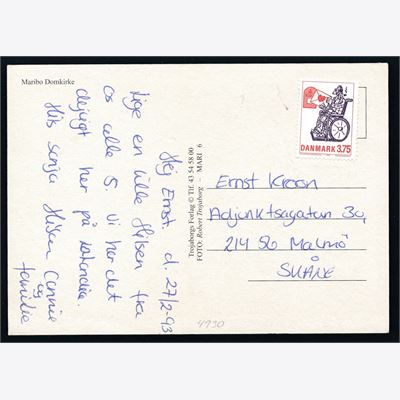 Maribo Domkirke
Hej Ernst. d. 27/2-93
Lige en lille Hilsen fra
os alle 5. vi har det
dejligt her på
Hilsen Connie
og
familie
Trojaborgs Forlag © Tlf. 43 54 58 00
FOTO: Robert Trojaborg – MARI 6
DANMARK 3.75
Ernst Kroon
Adjunktsgatan 3a,
214 56 Malmö
4930